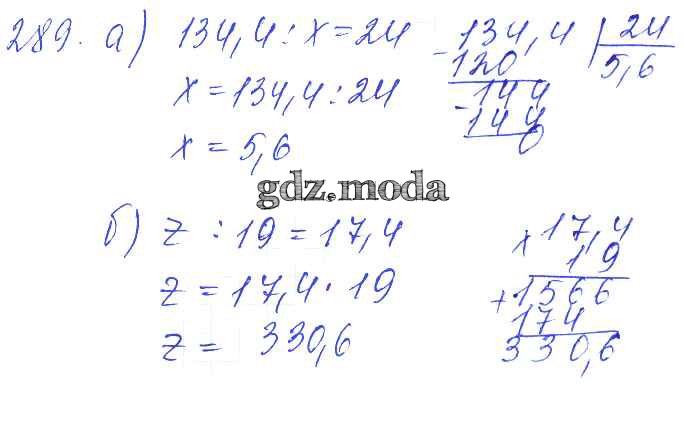 289. а) 134,4 : x = 24
x = 134,4 : 24
x = 5,6
- 134,4 | 24
120 5,6
- 144
144
0
gdz.moda
б) z : 19 = 17,4
z = 17,4 · 19
z = 330,6
x 17,4
19
+ 1566
174
330,6